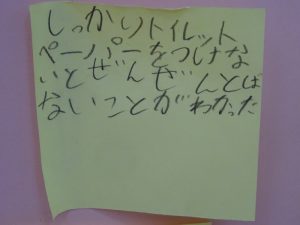 しっかりトイレット
ペーパーをつけな
いとぜんぜんとば
ないことがわかった